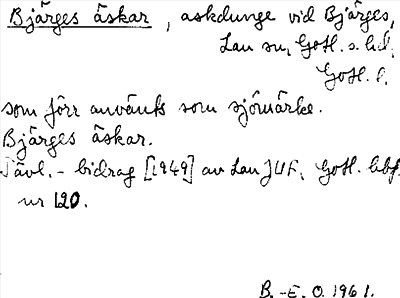 Bjärges äskar, askdunge vid Bjärges,
Lau sn, Gotl. s. hd,
Gotl. l.
som förr använts som sjömärke.
Bjärges äskar.
Tävl.-bidrag [1949] av Lau JUF, Gotl. bbf.
nr 120.
B.-E. O. 1961.